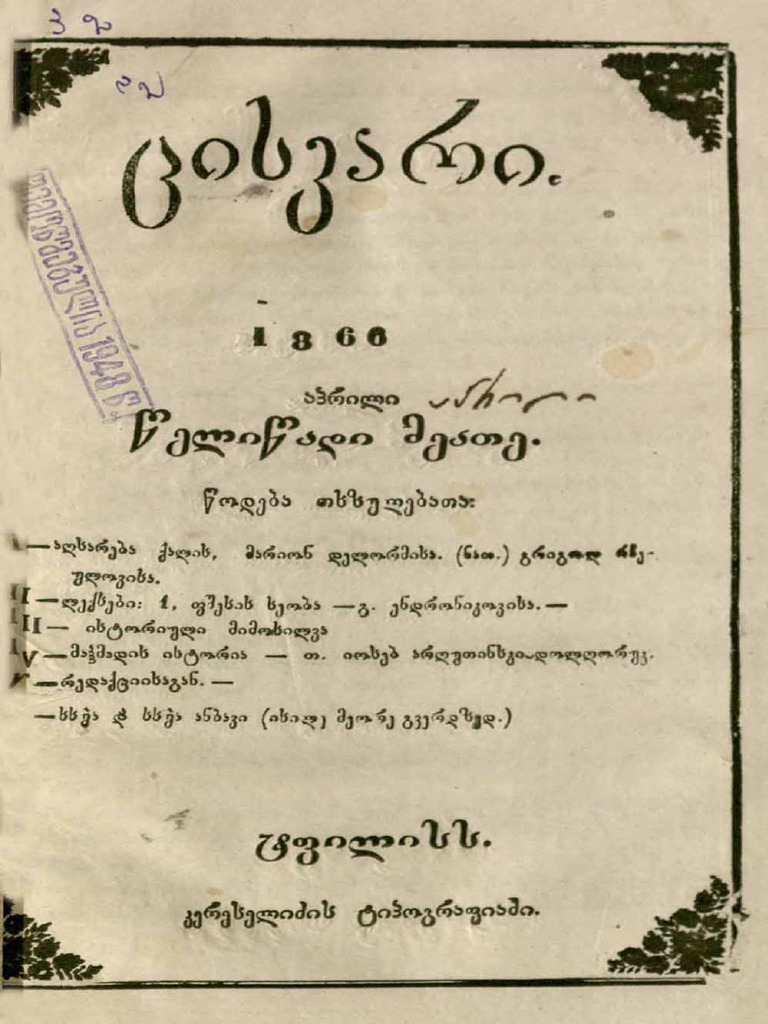 ცისკარი.
1866
აპრილი აპრილი
წელიწადი მეათე.
წოდება თხზულებათა:
I—აღსარება ქალის, მარიონ დელორმისა. (ნათ.) გრიგოლ რჩე-
ულოვისა.
II—ლექსები: 1, ფშავის ხეობა —გ. ენდრონიკოვისა.—
III— ისტორიული მიმოხილვა
IV—მაჰმადის ისტორია — თ. იოსებ არღუთინსკი-დოლღორუკ.
V—რედაქციისაგან. —
—სხჳა და სხჳა ანბავი (იხილე მეორე გვერდზედ.)
ტფილისს.
კერესელიძის ტიპოგრაფიაში.
შემოწმებულია 1948 წ.